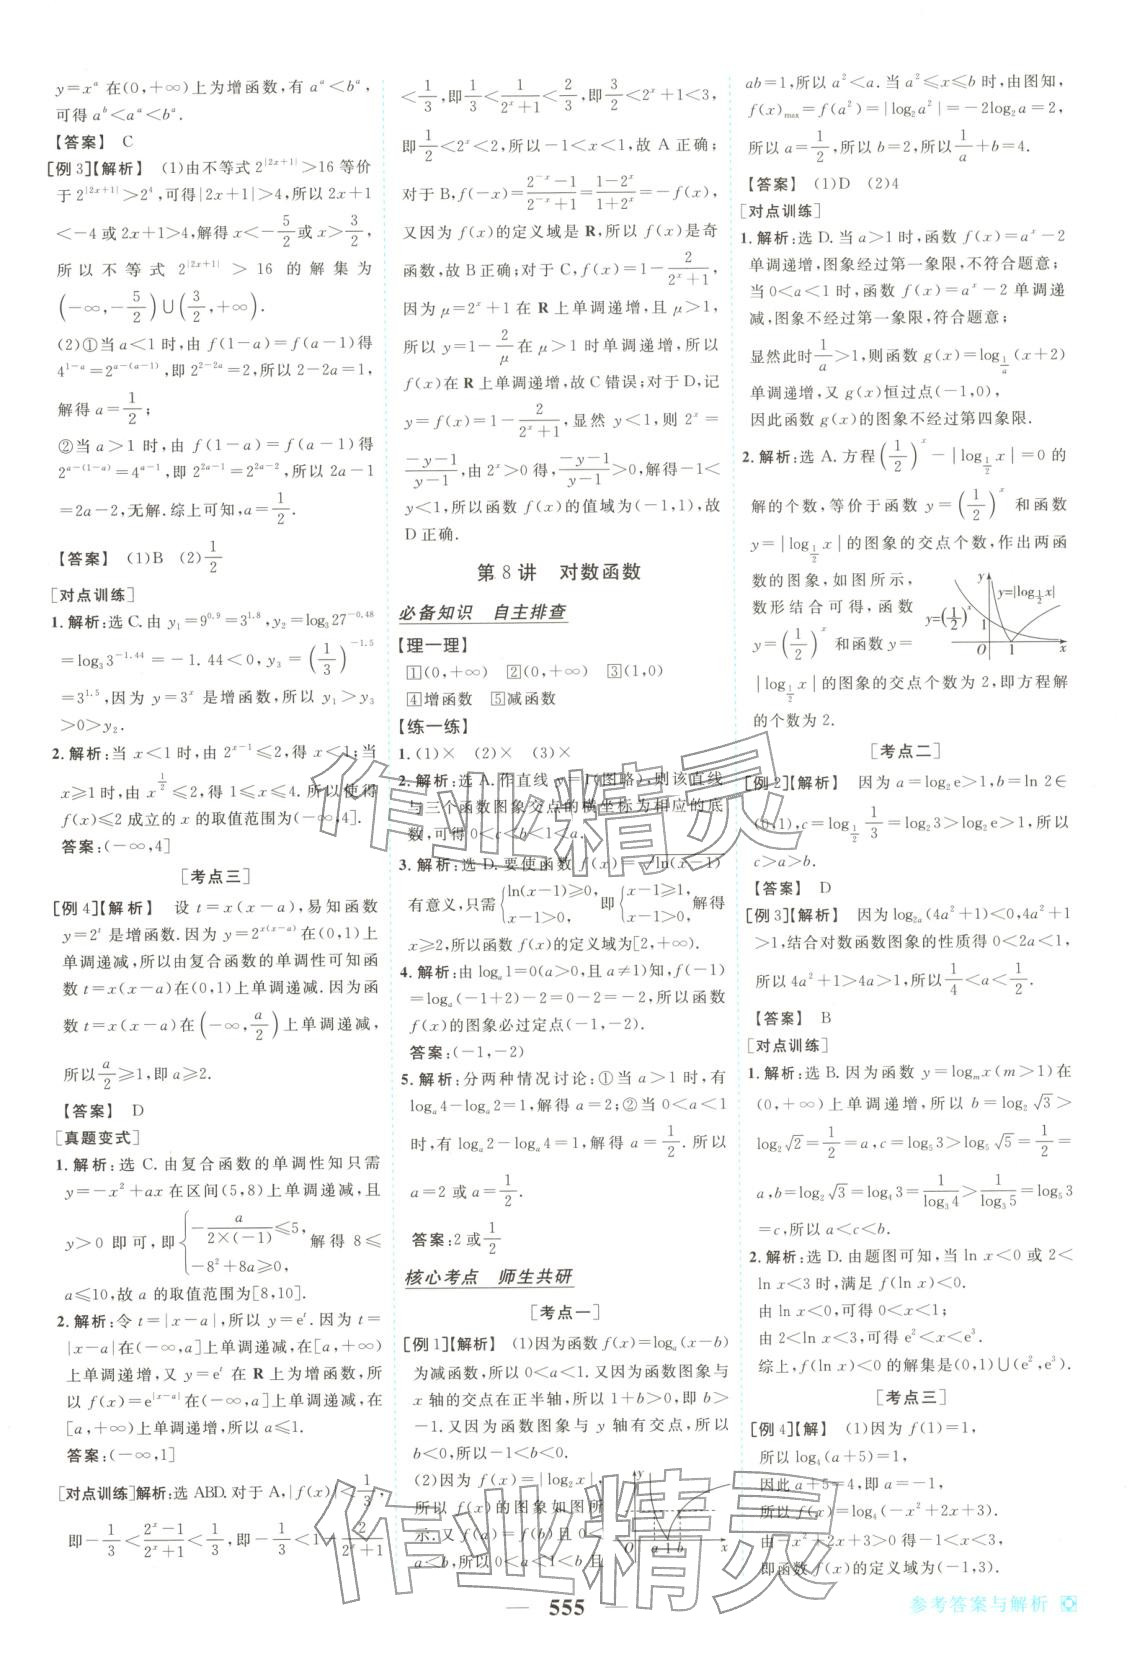 y=xᵃ 在(0,+∞)上为增函数,有 aᵃ<bᵃ,
可得 aᵇ<aᵃ<bᵃ.
【答案】 C
[例 3]【解析】 (1)由不等式 2^{|2x+1|}>16 等价
于 2^{|2x+1|}>2⁴,可得|2x+1|>4,所以 2x+1
<-4 或 2x+1>4,解得 x<-5/2 或 x>3/2,
所以不等式 2^{|2x+1|} > 16 的解集为
(-∞,-5/2)∪(3/2,+∞).
(2)①当 a<1 时,由 f(1-a)=f(a-1)得
4^{1-a}=2^{a-(a-1)},即 2^{2-2a}=2,所以 2-2a=1,
解得 a=1/2;
②当 a>1 时,由 f(1-a)=f(a-1)得
2^{a-(1-a)}=4^{a-1},即 2^{2a-1}=2^{2a-2},所以 2a-1
=2a-2,无解.综上可知,a=1/2.
【答案】 (1)B (2)1/2
[对点训练]
1.解析:选 C.由 y₁=9^{0.9}=3^{1.8},y₂=log₃27^{-0.48}
=log₃3^{-1.44}=-1.44<0,y₃=(1/3)^{-1.5}
=3^{1.5},因为 y=3ˣ 是增函数,所以 y₁>y₃
>0>y₂.
2.解析:当 x<1 时,由 2^{x-1}≤2,得 x<1;当
x≥1 时,由 x^{1/2}≤2,得 1≤x≤4.所以使得
f(x)≤2 成立的 x 的取值范围为(-∞,4].
答案:(-∞,4]
[考点三]
[例 4]【解析】 设 t=x(x-a),易知函数
y=2ᵗ 是增函数.因为 y=2^{x(x-a)}在(0,1)上单
调递减,所以由复合函数的单调性可知函
数 t=x(x-a)在(0,1)上单调递减.因为函
数 t=x(x-a)在(-∞,a/2)上单调递减,
所以 a/2≥1,即 a≥2.
【答案】 D
[真题变式]
1.解析:选 C.由复合函数的单调性知只需
y=-x²+ax 在区间(5,8)上单调递减,且
y>0 即可,即{-a/(2×(-1))≤5, -8²+8a≥0, 解得 8≤
a≤10,故 a 的取值范围为[8,10].
2.解析:令 t=|x-a|,所以 y=eᵗ,因为 t=
|x-a|在(-∞,a]上单调递减,在[a,+∞)
上单调递增,又 y=eᵗ 在 R 上为增函数,所
以 f(x)=e^{|x-a|}在(-∞,a]上单调递减,在
[a,+∞)上单调递增,所以 a≤1.
答案:(-∞,1]
[对点训练]解析:选 ABD.对于 A,|f(x)|<1/3,
即-1/3<(2ˣ-1)/(2ˣ+1)<1/3,即-1/3<1-2/(2ˣ+1)
<1/3,即1/3<1/(2ˣ+1)<2/3,即3/2<2ˣ+1<3,
即1/2<2ˣ<2,所以-1<x<1,故 A 正确;
对于 B,f(-x)=(2⁻ˣ-1)/(2⁻ˣ+1)=(1-2ˣ)/(1+2ˣ)=-f(x),
又因为 f(x)的定义域是 R,所以 f(x)是奇
函数,故 B 正确;对于 C,f(x)=1-2/(2ˣ+1),
因为 μ=2ˣ+1 在 R 上单调递增,且 μ>1,
所以 y=1-2/μ 在 μ>1 时单调递增,所以
f(x)在 R 上单调递增,故 C 错误;对于 D,记
y=f(x)=1-2/(2ˣ+1),显然 y<1,则 2ˣ=
(-y-1)/(y-1),由 2ˣ>0 得,(-y-1)/(y-1)>0,解得-1<
y<1,所以函数 f(x)的值域为(-1,1),故
D 正确.
第 8 讲 对数函数
必备知识 自主排查
【理一理】
①(0,+∞) ②(0,+∞) ③(1,0)
④增函数 ⑤减函数
【练一练】
1.(1)× (2)× (3)×
2.解析:选 A.作直线 y=1(图略),则该直线
与三个函数图象交点的横坐标为相应的底
数,可得 0<c<b<1<a.
3.解析:选 D.要使函数 f(x)=√ln(x-1)
有意义,只需{ln(x-1)≥0, x-1>0, 即{x-1≥1, x-1>0, 解得
x≥2,所以函数 f(x)的定义域为[2,+∞).
4.解析:由 logₐ1=0(a>0,且 a≠1)知,f(-1)
=logₐ(-1+2)-2=0-2=-2,所以函数
f(x)的图象必过定点(-1,-2).
答案:(-1,-2)
5.解析:分两种情况讨论:①当 a>1 时,有
logₐ4-logₐ2=1,解得 a=2;②当 0<a<1
时,有 logₐ2-logₐ4=1,解得 a=1/2.所以
a=2 或 a=1/2.
答案:2或1/2
核心考点 师生共研
[考点一]
[例 1]【解析】 (1)因为函数 f(x)=logₐ(x-b)
为减函数,所以 0<a<1.又因为函数图象与
x 轴的交点在正半轴,所以 1+b>0,即 b>
-1.又因为函数图象与 y 轴有交点,所以
b<0,所以-1<b<0.
(2)因为 f(x)=|log₂x|,
所以 f(x)的图象如图所
示.又 f(a)=f(b)且 0<
a<b,所以 0<a<1,b>1,且
y
O a 1 b x
ab=1,所以 a²<a.当 a²≤x≤b 时,由图知,
f(x)max=f(a²)=|log₂a²|=-2log₂a=2,
所以 a=1/2,所以 b=2,所以1/a+b=4.
【答案】 (1)D (2)4
[对点训练]
1.解析:选 D.当 a>1 时,函数 f(x)=aˣ-2
单调递增,图象经过第一象限,不符合题意;
当 0<a<1 时,函数 f(x)=aˣ-2 单调递
减,图象不经过第一象限,符合题意;
显然此时1/a>1,则函数 g(x)=log_{1/a}(x+2)
单调递增,又 g(x)恒过点(-1,0),
因此函数 g(x)的图象不经过第四象限.
2.解析:选 A.方程(1/2)ˣ-|log_{1/2}x|=0 的
解的个数,等价于函数 y=(1/2)ˣ 和函数
y=|log_{1/2}x|的图象的交点个数,作出两函
数的图象,如图所示,
数形结合可得,函数
y=(1/2)ˣ 和函数 y=
|log_{1/2}x|的图象的交点个数为 2,即方程解
的个数为 2.
y y=|log_{1/2}x|
y=(1/2)ˣ 1
O 1 x
[考点二]
[例 2]【解析】 因为 a=log₂e>1,b=ln 2∈
(0,1),c=log_{1/2}1/3=log₂3>log₂e>1,所以
c>a>b.
【答案】 D
[例 3]【解析】 因为 log₂ₐ(4a²+1)<0,4a²+1
>1,结合对数函数图象的性质得 0<2a<1,
所以 4a²+1>4a>1,所以1/4<a<1/2.
【答案】 B
[对点训练]
1.解析:选 B.因为函数 y=logₘx(m>1)在
(0,+∞)上单调递增,所以 b=log₂√3>
log₂√2=1/2=a,c=log₅3>log₅√5=1/2=
a,b=log₂√3=log₄3=1/log₃4>1/log₃5=log₅3
=c,所以 a<c<b.
2.解析:选 D.由题图可知,当 ln x<0 或 2<
ln x<3 时,满足 f(ln x)<0.
由 ln x<0,可得 0<x<1;
由 2<ln x<3,可得 e²<x<e³.
综上,f(ln x)<0 的解集是(0,1)∪(e²,e³).
[考点三]
[例 4]【解】 (1)因为 f(1)=1,
所以 log₄(a+5)=1,
因此 a+5=4,即 a=-1,
所以 f(x)=log₄(-x²+2x+3).
由-x²+2x+3>0 得-1<x<3,
即函数 f(x)的定义域为(-1,3).
作业精灵
作业精灵
555
参考答案与解析